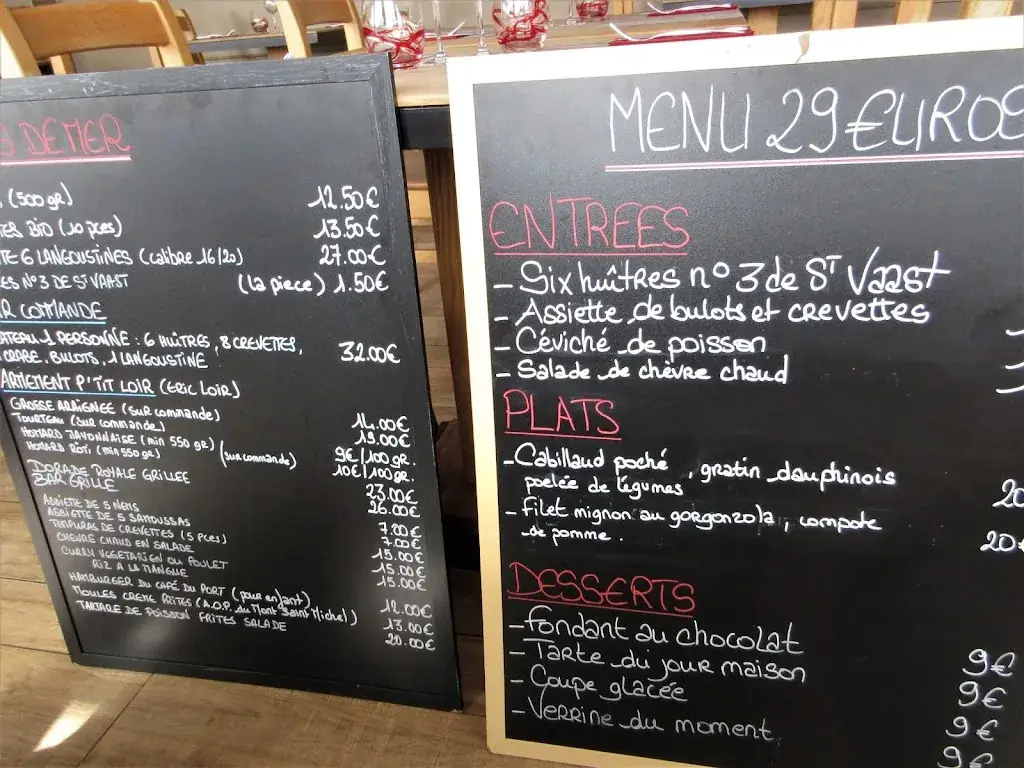 DE MER
(500 gr) 12.50€
BIO (10 pces) 13.50€
6 LANGOUSTINES (calibre 16/20) 27.00€
N°3 DE ST VAAST (la piece) 1.50€
COMMANDE
1 PERSONNE : 6 HUÎTRES, 8 CREVETTES,
CRABE, BULOTS, 1 LANGOUSTINE 32.00€
P'TIT LOIR (ERIC LOIR)
GROSSE ARAIGNEE (sur commande) 14.00€
TOURTEAU (sur commande) 19.00€
HOMARD MAYONNAISE (min 550 gr) (sur commande) 9€/100gr.
HOMARD RÔTI (min 550 gr) 10€/100gr.
DORADE ROYALE GRILLEE 23.00€
BAR GRILLE 26.00€
ASSIETTE DE 5 NEMS 7.20€
ASSIETTE DE 5 SAMOUSSAS 7.00€
TEMPURAS DE CREVETTES (5 pces) 15.00€
CHEVRE CHAUD EN SALADE 15.00€
CURRY VEGETARIEN OU POULET 15.00€
RIZ A LA MANGUE
HAMBURGER DU CAFÉ DU PORT (pour enfant) 12.00€
MOULES CREME FRITES (A.O.P. du Mont Saint Michel) 13.00€
TARTARE DE POISSON FRITES SALADE 20.00€
MENU 29 €UROS
ENTREES
- Six huîtres n°3 de ST Vaast
- Assiette de bulots et crevettes
- Céviché de poisson
- Salade de chèvre chaud
PLATS
- Cabillaud poché, gratin dauphinois
poelée de légumes 20
- Filet mignon au gorgonzola, compote
de pomme. 20€
DESSERTS
- Fondant au chocolat 9€
- Tarte du jour maison 9€
- Coupe glacée 9€
- Verrine du moment 9€